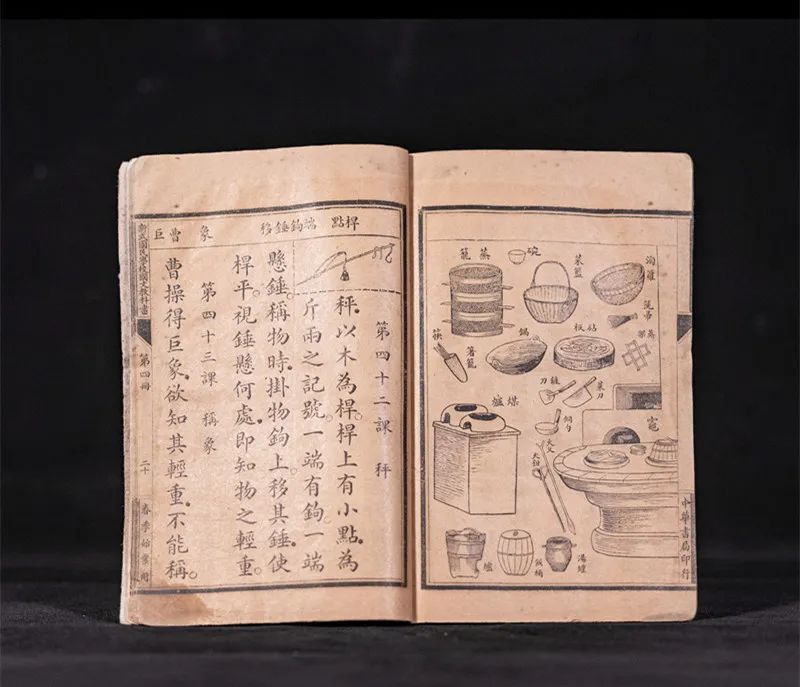 中華書局印行
淘籮
菜籃
碗
蒸籠
筅帚
蒸架
砧板
鍋
箸籠
筷
菜刀
銅勺
煤爐
竈
火叉
火鉗
湯罐
飯桶
爐
桿點
端鉤錘移
象
曹巨
第四十二課 秤
秤。以木為桿。桿上有小點。為
斤兩之記號。一端有鉤。一端
懸錘。稱物時。掛物鉤上。移其錘。使
桿平。視錘懸何處。即知物之輕重。
第四十三課 稱象
曹操得巨象。欲知其輕重。不能稱。
新式國民學校國文教科書
第四冊
二十
春季始業用